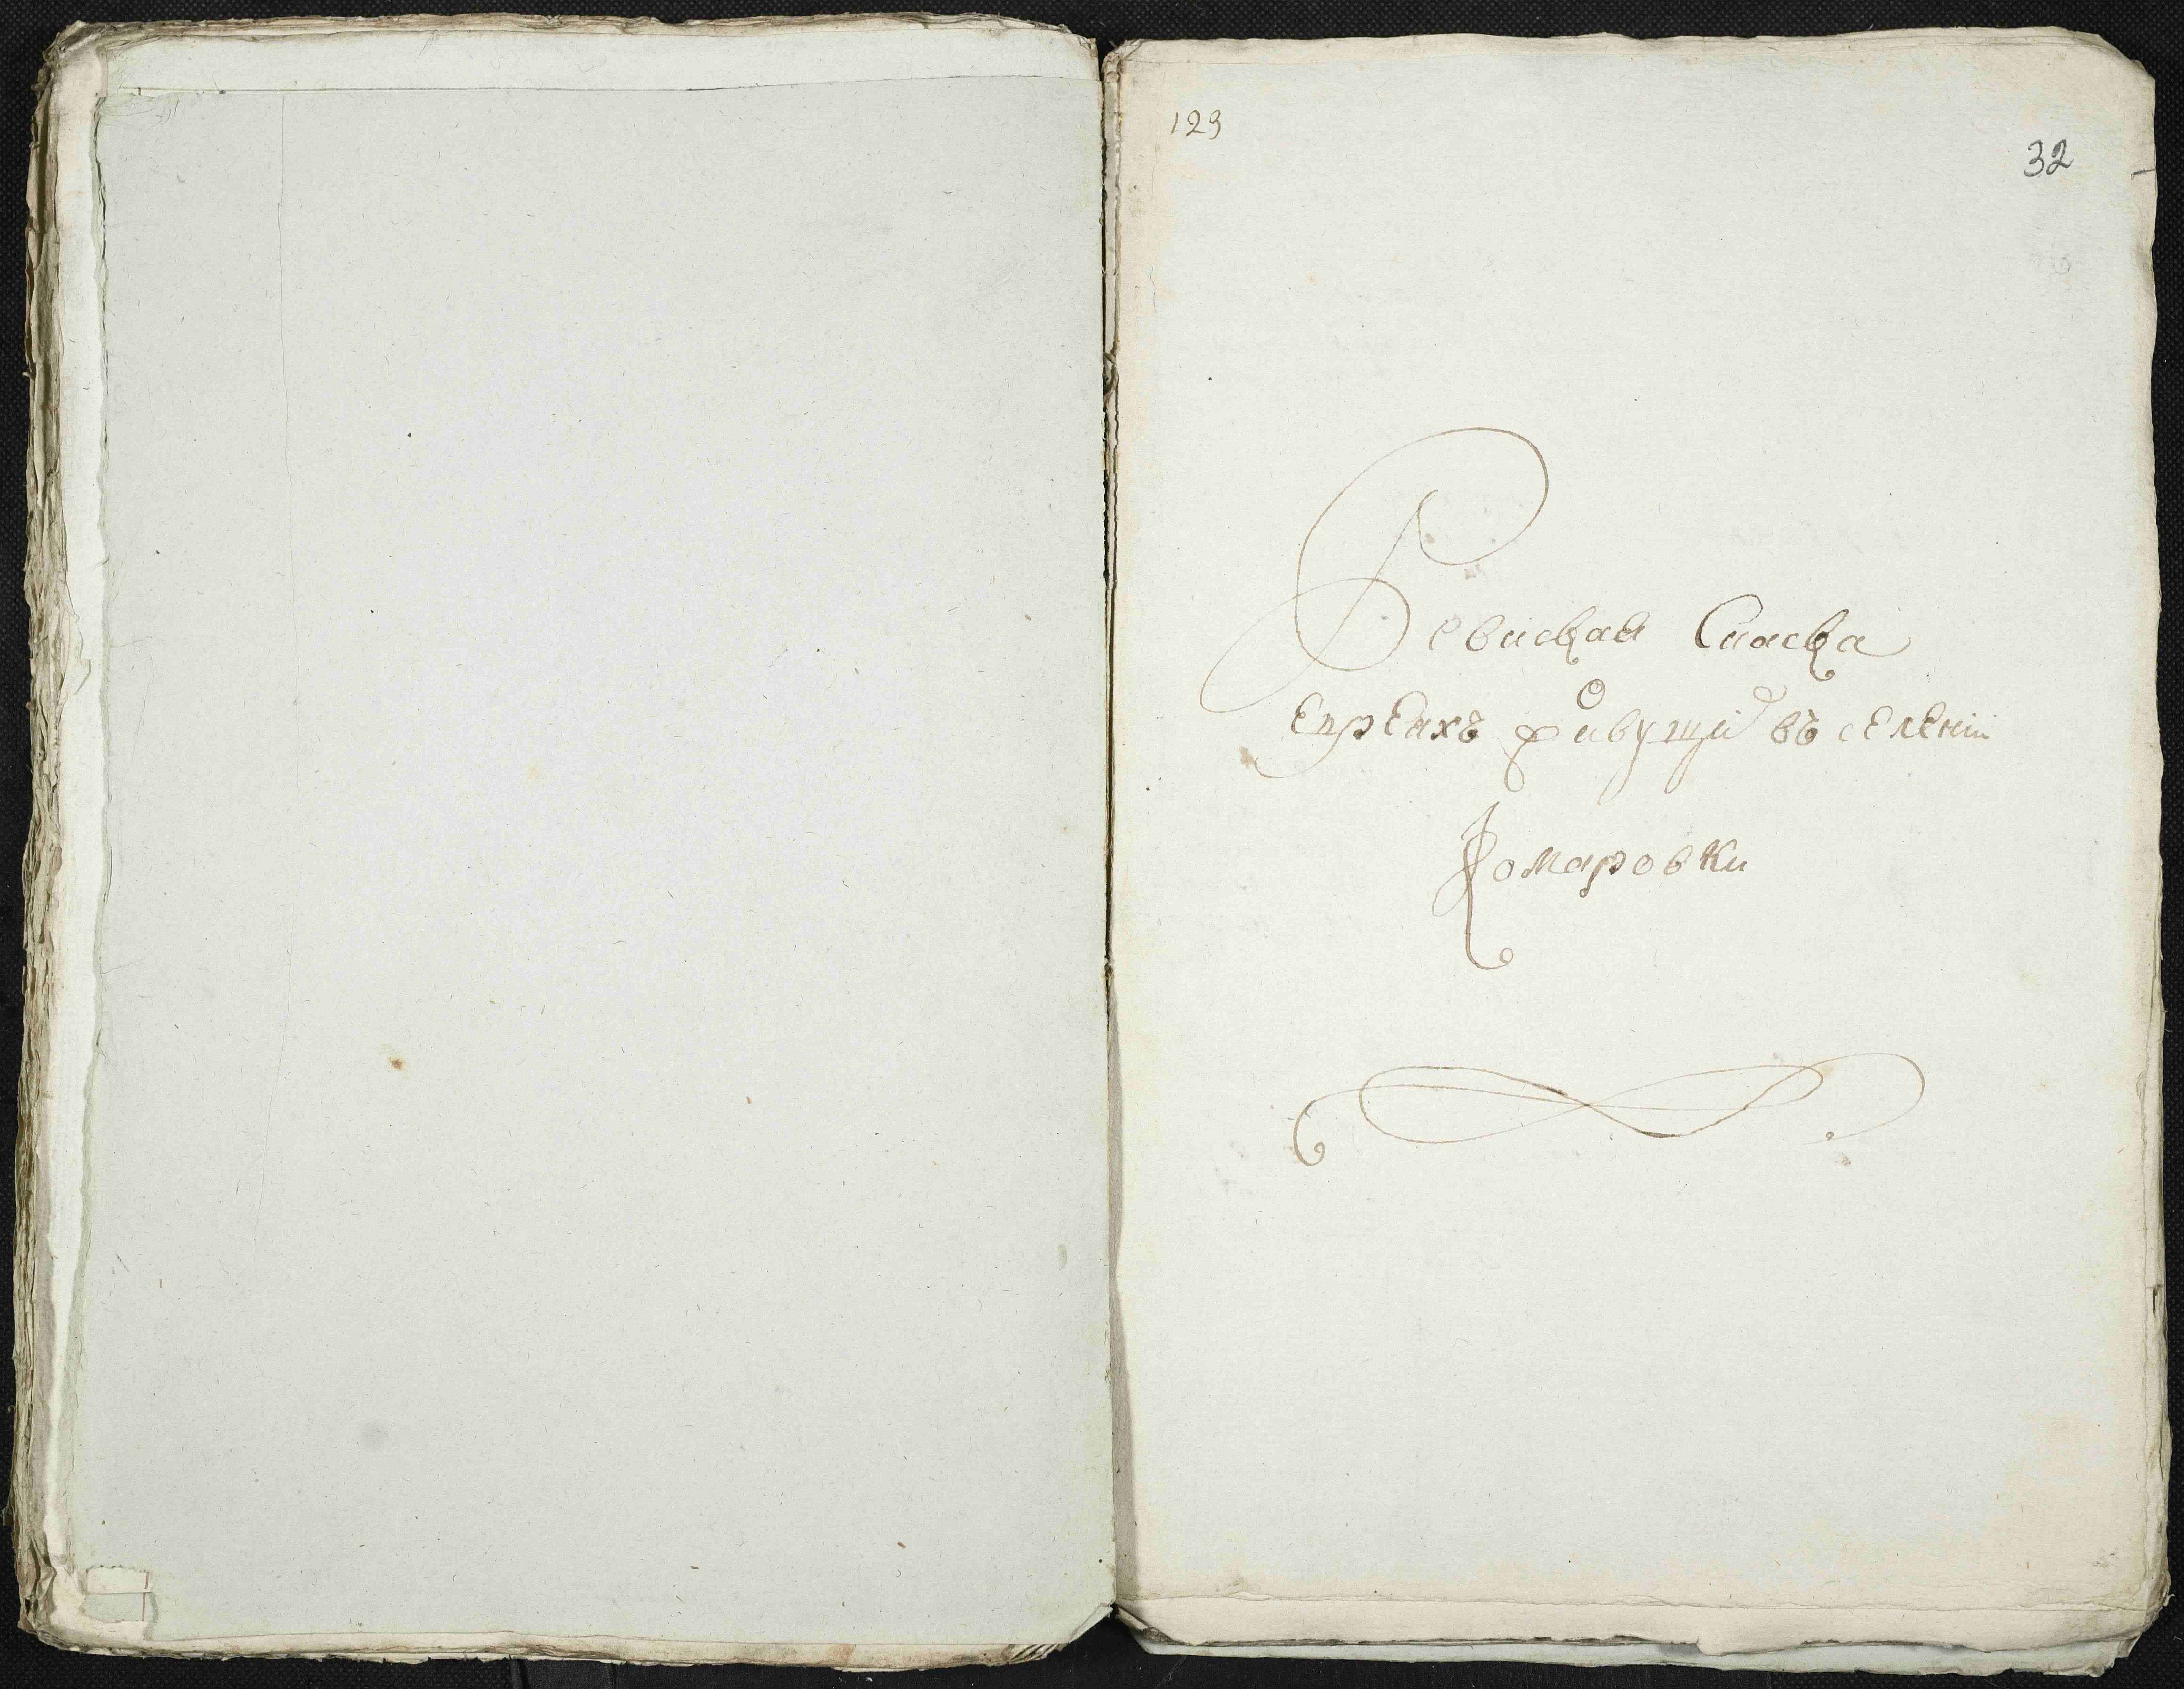 129
32
Ревиская Скаска
О
Евреяхъ живущи въ селении
Комаровки